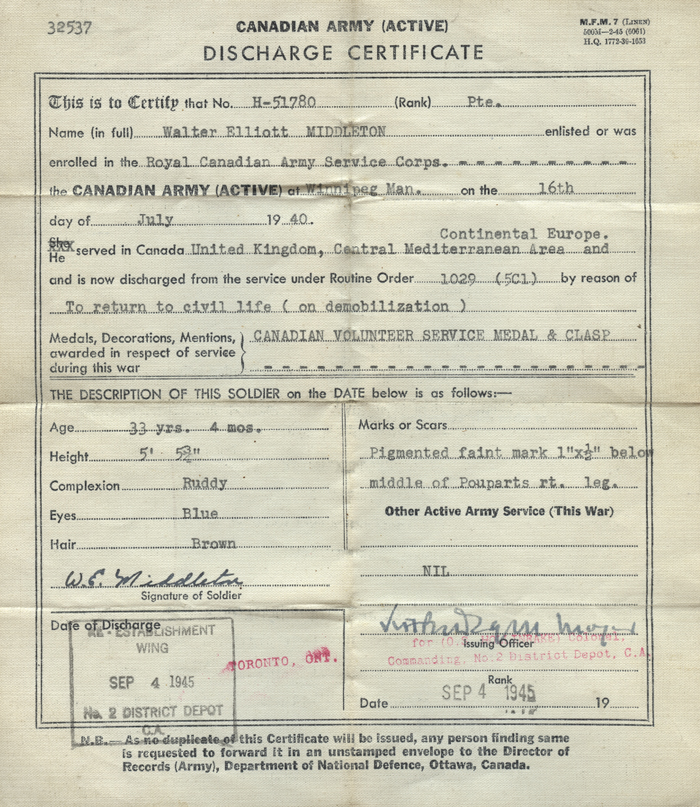 32537
CANADIAN ARMY (ACTIVE)
DISCHARGE CERTIFICATE
M.F.M. 7 (LINEN)
500M—2-45 (6061)
H.Q. 1772-39-1653
This is to Certify that No. H-51780 (Rank) Pte.
Name (in full) Walter Elliott MIDDLETON enlisted or was
enrolled in the Royal Canadian Army Service Corps.
the CANADIAN ARMY (ACTIVE) at Winnipeg Man. on the 16th
day of July 19 40.
Continental Europe.
She
He served in Canada United Kingdom, Central Mediterranean Area and
and is now discharged from the service under Routine Order 1029 (5C1) by reason of
To return to civil life ( on demobilization )
Medals, Decorations, Mentions, CANADIAN VOLUNTEER SERVICE MEDAL & CLASP
awarded in respect of service
during this war
THE DESCRIPTION OF THIS SOLDIER on the DATE below is as follows:—
Age 33 yrs. 4 mos.
Height 5'
Complexion Ruddy
Eyes Blue
Hair Brown
W.E. Middleton
Signature of Soldier
Marks or Scars
Pigmented faint mark 1"x½" below
middle of Pouparts rt. leg.
Other Active Army Service (This War)
NIL
Major
Issuing Officer
for Colonel,
Commanding, No. 2 District Depot, C.A.
Rank
Date SEP 4 1945 19
Date of Discharge
RE-ESTABLISHMENT
WING
SEP 4 1945
No. 2 DISTRICT DEPOT
C.A.
TORONTO, ONT.
N.B.—As no duplicate of this Certificate will be issued, any person finding same
is requested to forward it in an unstamped envelope to the Director of
Records (Army), Department of National Defence, Ottawa, Canada.